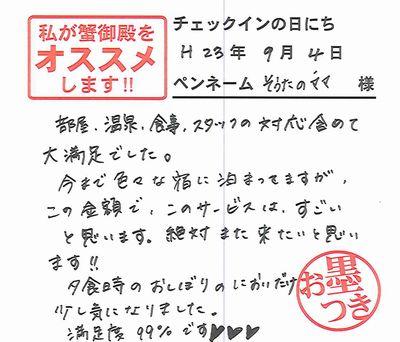 私が蟹御殿を
オススメ
します!!
チェックインの日にち
H 23年 9月 4日
ペンネーム そうたのママ 様
部屋、温泉、食事、スタッフの対応含めて
大満足でした。
今まで色々な宿に泊まってますが、
この金額で、このサービスは、すごい
と思います。絶対また来たいと思い
ます!!
夕食時のおしぼりのにおいだけ
少し気になりました。
満足度 99%です♥♥♥
お墨つき